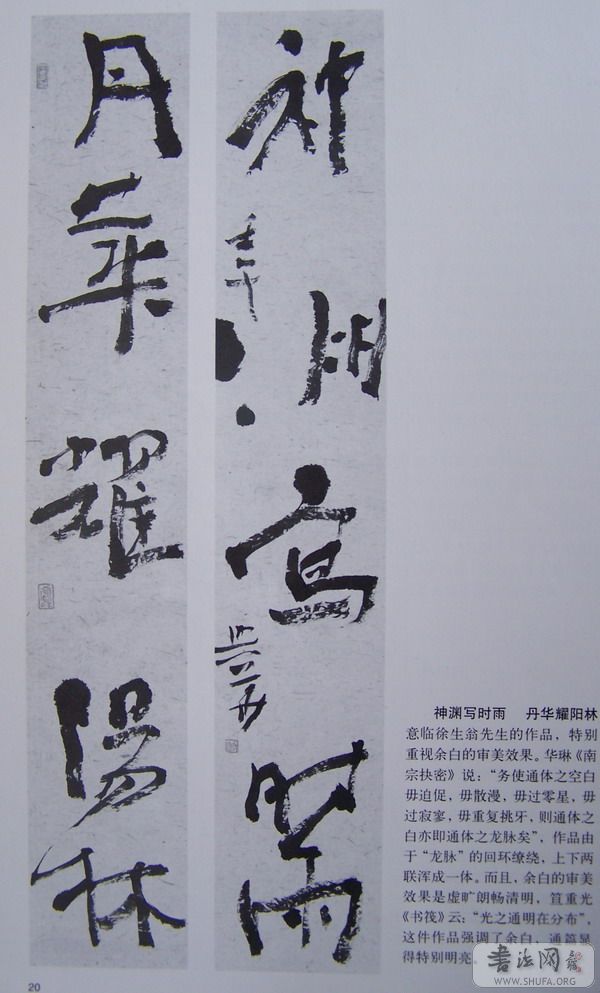 神淵寫時雨
壬午
丹華耀陽林
神渊写时雨　丹华耀阳林
意临徐生翁先生的作品，特别
重视余白的审美效果。华琳《南
宗抉密》说：“务使通体之空白
毋迫促，毋散漫，毋过零星，毋
过寂寥，毋重复挑牙，则通体之
白亦即通体之龙脉矣”，作品由
于“龙脉”的回环缭绕，上下两
联浑成一体。而且，余白的审美
效果是虚旷朗畅清明，笪重光
《书筏》云：“光之通明在分布”，
这件作品强调了余白，通篇显
得特别明亮。
20
書法网
WWW.SHUFA.ORG